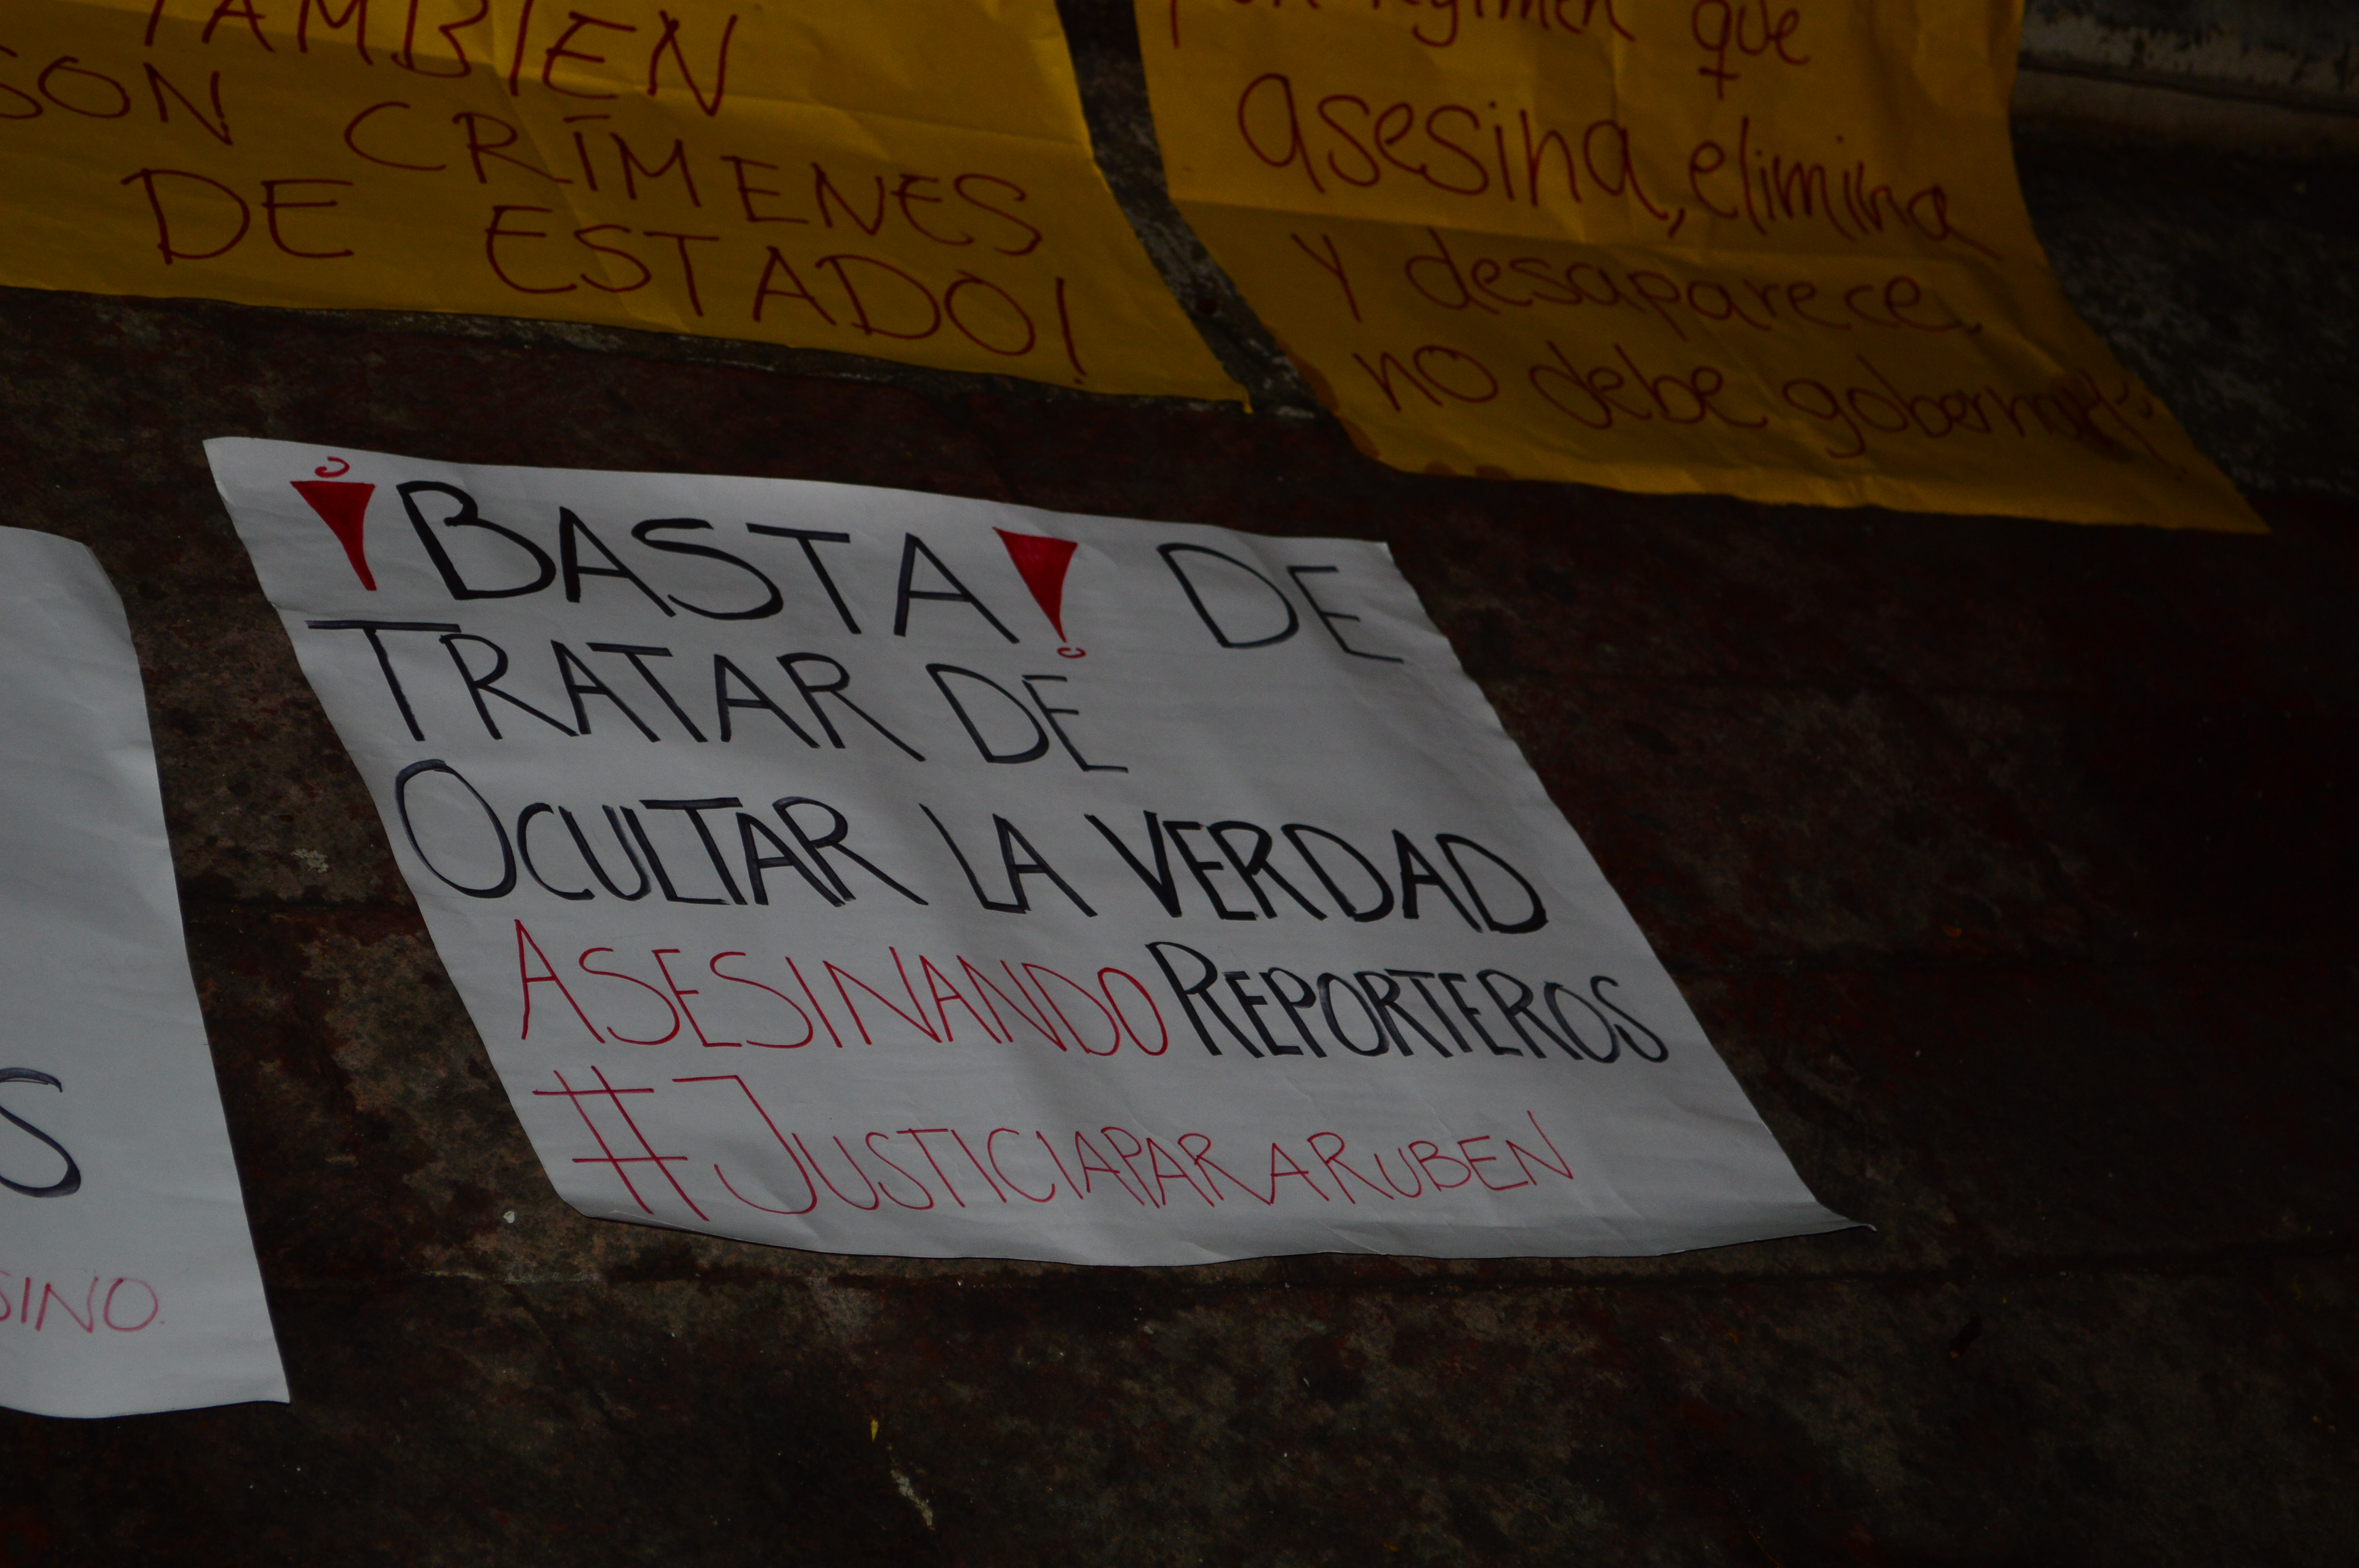 TAMBIEN
SON CRÍMENES
DE ESTADO!
régimen que
asesina, elimina
y desaparece,
no debe
¡BASTA! DE
TRATAR DE
OCULTAR LA VERDAD
ASESINANDO REPORTEROS
#JUSTICIAPARARUBEN
S
SINO.